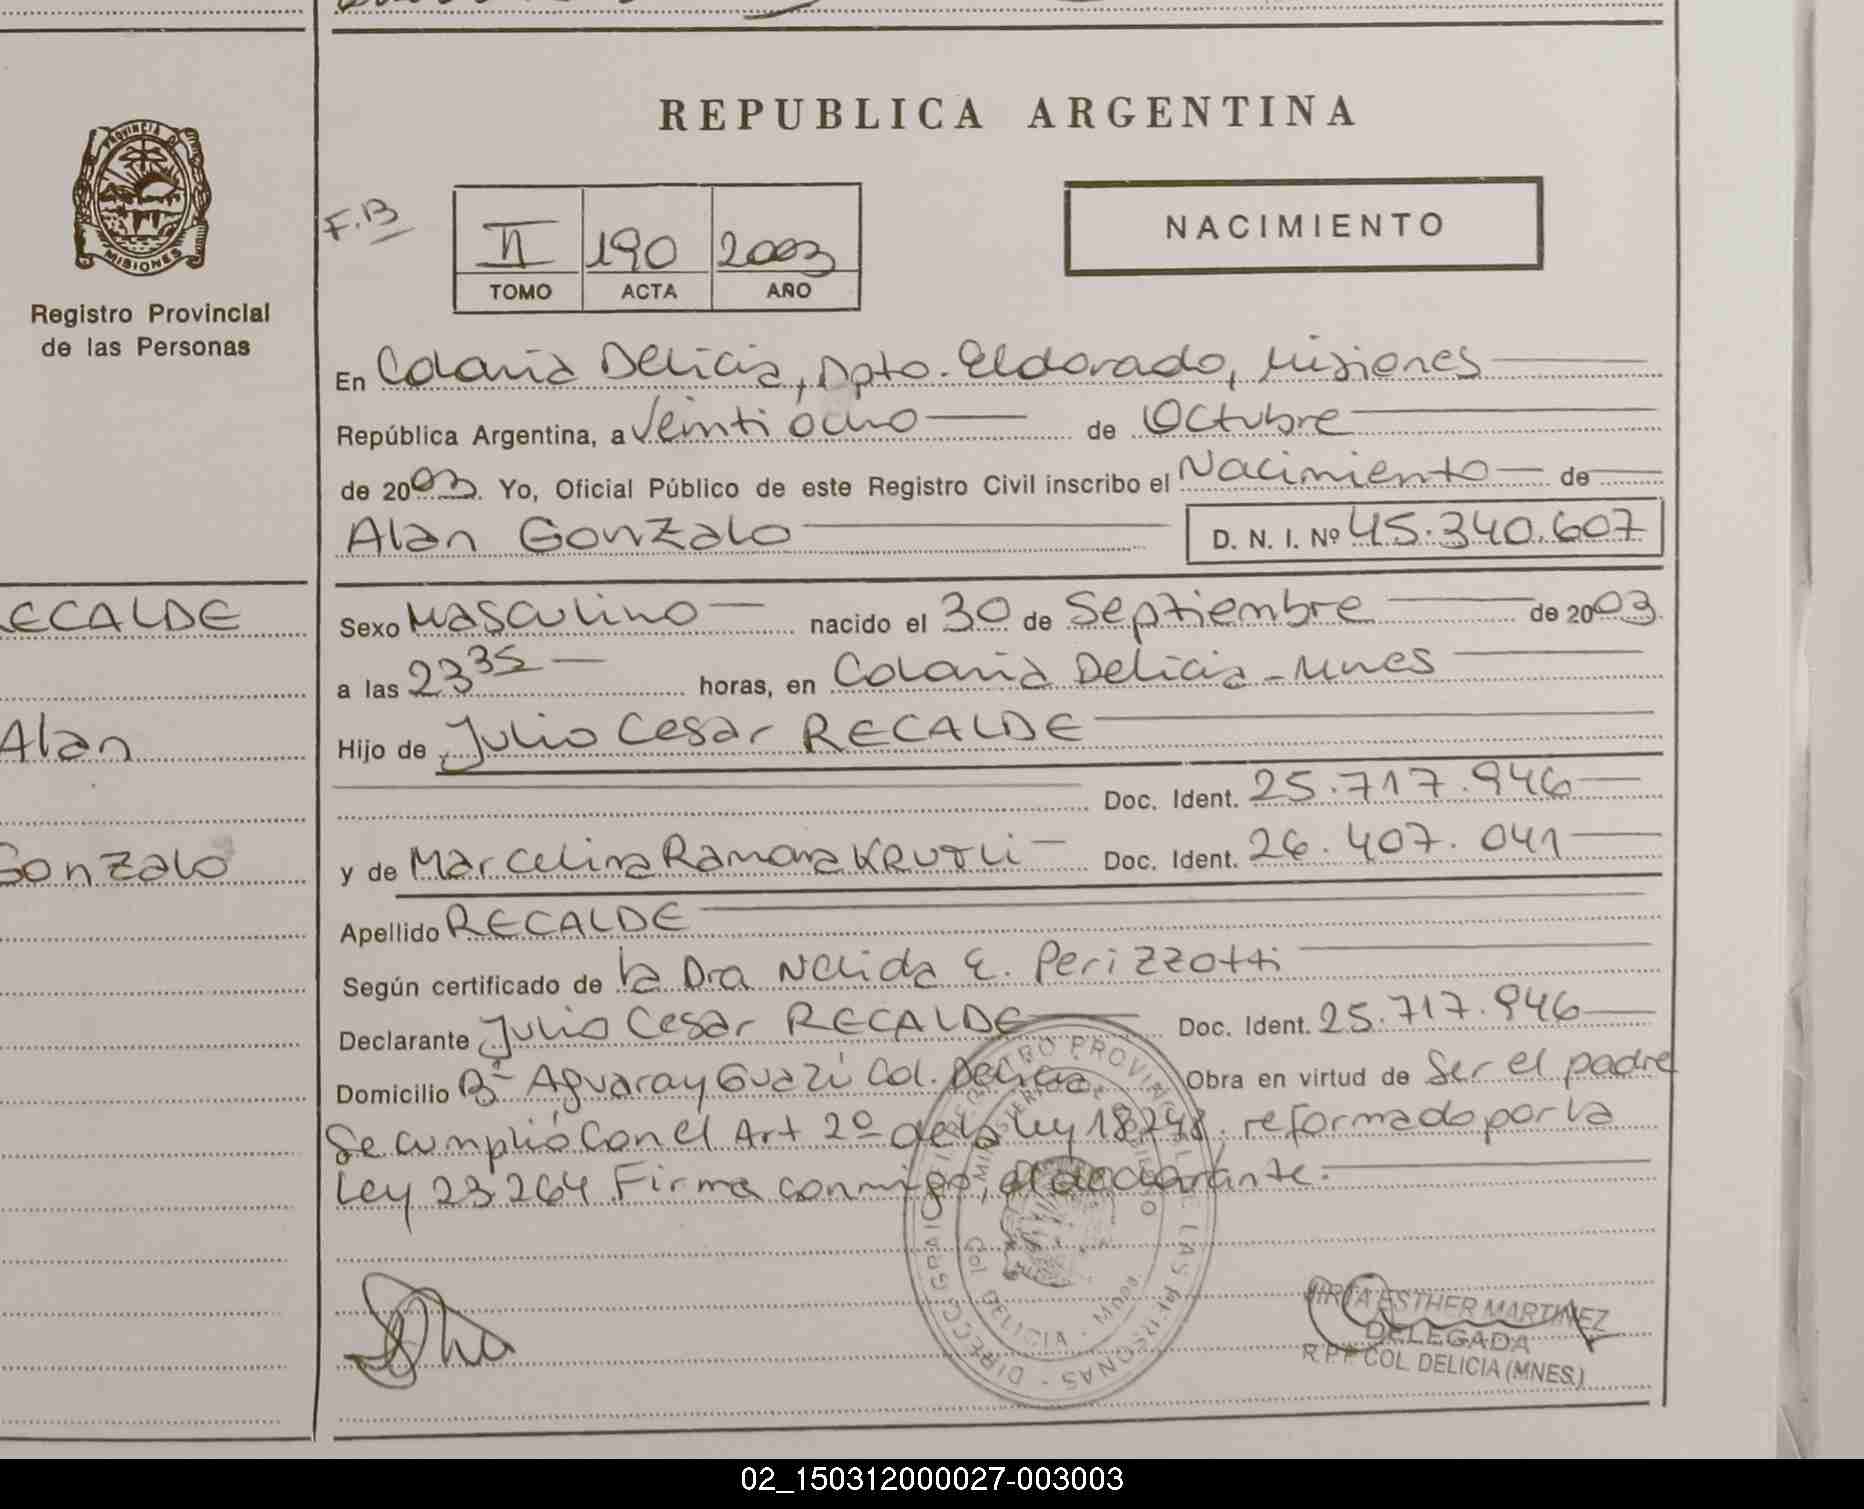 PROVINCIA D
MISIONES
Registro Provincial
de las Personas
ECALDE
Alan
Gonzalo
REPUBLICA ARGENTINA
F.B
II 190 2003
TOMO ACTA AÑO
NACIMIENTO
En Colonia Delicia, Dpto. Eldorado, Misiones
República Argentina, a Veintiocho de Octubre
de 2003. Yo, Oficial Público de este Registro Civil inscribo el Nacimiento de
Alan Gonzalo D. N. I. Nº 45.340.607
Sexo Masculino nacido el 30 de Septiembre de 2003
a las 23 35 horas, en Colonia Delicia - Mnes
Hijo de Julio Cesar RECALDE
Doc. Ident. 25.717.946
y de Marcelina Ramona KRUTLI Doc. Ident. 26.407.041
Apellido RECALDE
Según certificado de la Dra Nelida E. Perizzotti
Declarante Julio Cesar RECALDE Doc. Ident. 25.717.946
Domicilio Bº Aguaray Guazú Col. Delicia Obra en virtud de Ser el padre
Se cumplió con el Art 2º de la ley 18248, reformado por la
Ley 23.264. Firma conmigo, el declarante.
DIRECC PROVINCIAL DE LAS PERSONAS
MINISTERIO DE GOBIERNO
Col. DELICIA - Mnes.
MIRTA ESTHER MARTINEZ
DELEGADA
R.P.P. COL. DELICIA (MNES.)
02_150312000027-003003